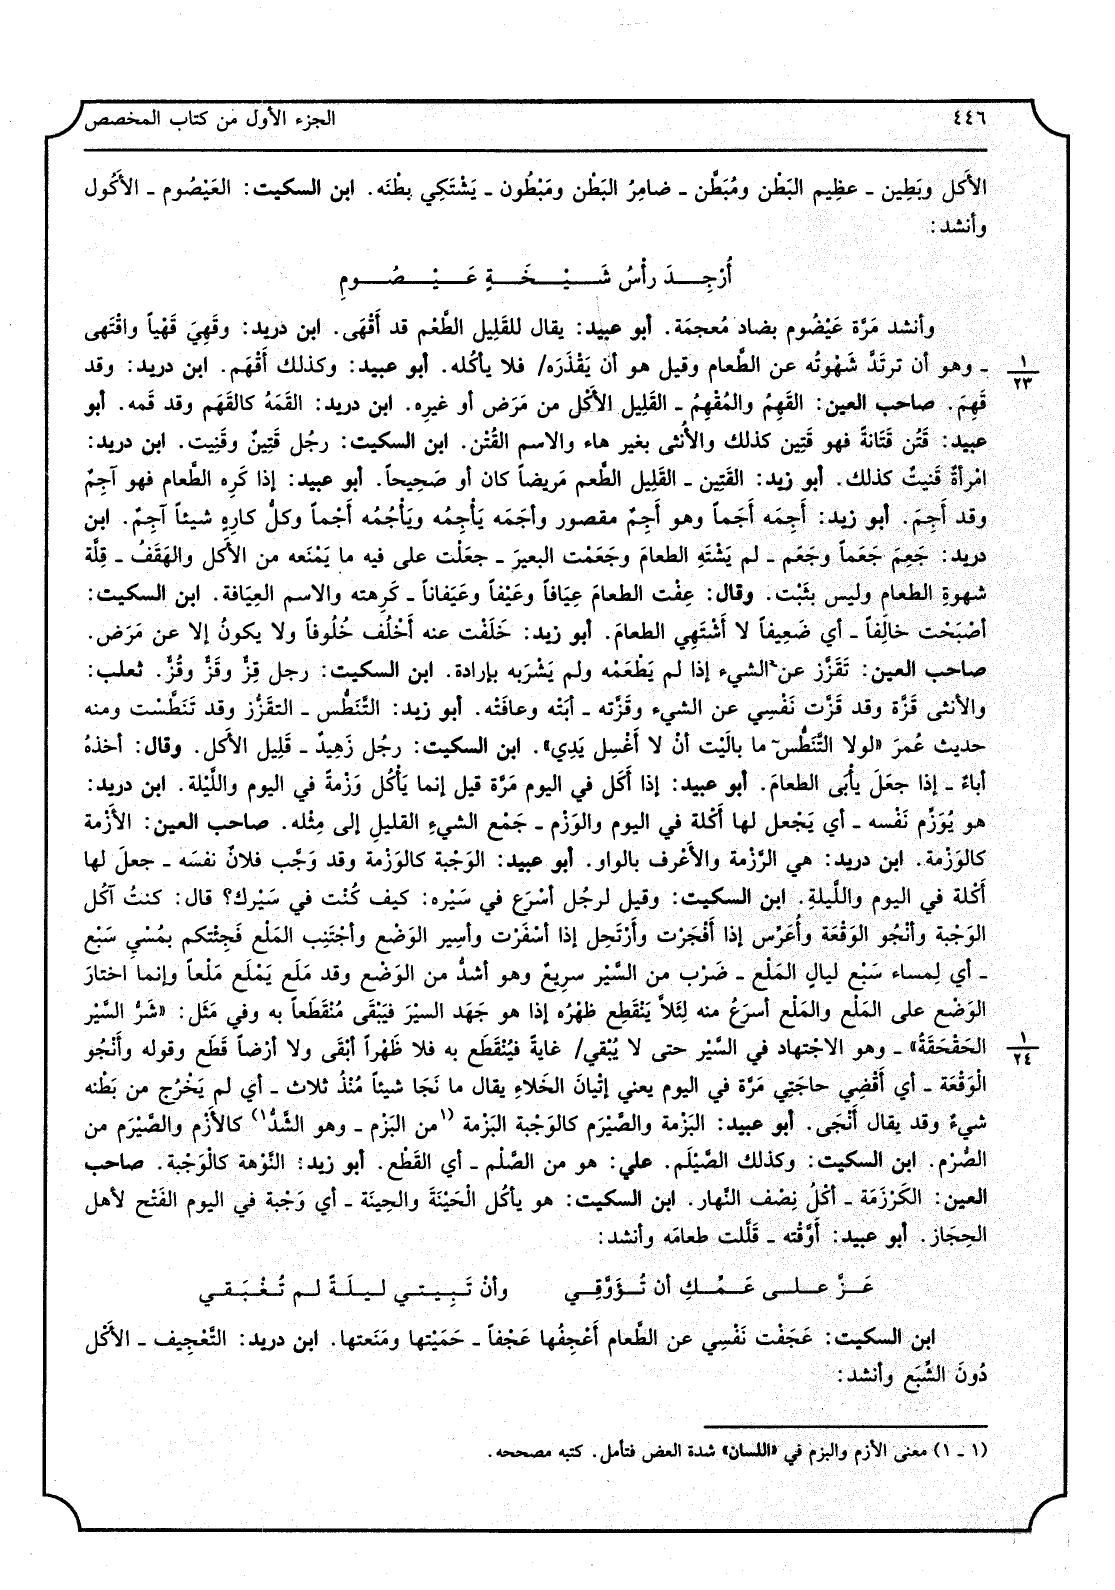 ٤٤٦ الجزء الأول من كتاب المخصص
الأَكل وبَطِين ـ عظِيم البَطْن ومُبَطَّن ـ ضامِرُ البَطْن ومَبْطُون ـ يَشْتَكِي بطْنَه. ابن السكيت: العَيْصُوم ـ الأَكُول
وأنشد:
أُرْجِــدَ رأْسُ شَــيْــخَــةٍ عَــيْــصُــومِ
وأنشد مَرَّة عَيْضُوم بضاد مُعجمَة. أبو عبيد: يقال للقَلِيل الطَّعْم قد أَقْهَى. ابن دريد: وقَهِيَ قَهْياً واقْتَهى
ـ وهو أن ترتَدَّ شَهْوتُه عن الطَّعام وقيل هو أن يَقْذَرَه/ فلا يأكُله. أبو عبيد: وكذلك أَقْهَم. ابن دريد: وقد
١
٢٣
قَهِمَ. صاحب العين: القَهِمُ والمُقْهِمُ ـ القَلِيل الأَكْل من مَرَض أو غيره. ابن دريد: القَمَهُ كالقَهَم وقد قمه. أبو
عبيد: قَتُن قَتَانةً فهو قَتِين كذلك والأُنثى بغير هاء والاسم القُتْن. ابن السكيت: رجُل قَتِينٌ وقَنِيت. ابن دريد:
امْرأةٌ قَنيتٌ كذلك. أبو زيد: القَتِين ـ القَلِيل الطَّعم مَريضاً كان أو صَحِيحاً. أبو عبيد: إذا كَرِه الطَّعام فهو آجِمٌ
وقد أَجِمَ. أبو زيد: أَجِمَه أَجَماً وهو أَجِمٌ مقصور وأجَمَه يَأْجِمُه ويَأْجُمُه أَجْماً وكلُّ كارِهٍ شيئاً آجِمٌ. ابن
دريد: جَعِمَ جَعَماً وجَعَم ـ لم يَشْتَهِ الطعامَ وجَعَمْت البعيرَ ـ جعَلْت على فيه ما يَمْنَعه من الأَكل والهَقَفُ ـ قِلَّة
شهوةِ الطعام وليس بثَبْت. وقال: عِفْت الطعامَ عِيَافاً وعَيْفاً وعَيَفاناً ـ كَرِهته والاسم العِيَافة. ابن السكيت:
أصْبَحْت خالِفاً ـ أي ضَعِيفاً لا أَشْتَهِي الطعامَ. أبو زيد: خَلَفْت عنه أَخْلُف خُلُوفاً ولا يكونُ إلا عن مَرَض.
صاحب العين: تَقَزَّز عن الشيء إذا لم يَطْعَمْه ولم يَشْرَبه بإرادة. ابن السكيت: رجل قِزٌّ وقَزٌّ وقُزٌّ. ثعلب:
والأنثى قَزَّة وقد قَزَّت نَفْسِي عن الشيء وقَزَّته ـ أبَتْه وعافَتْه. أبو زيد: التَّنَطُّس ـ التقَزُّز وقد تَنَطَّسْت ومنه
حديث عُمرَ «لولا التَّنَطُّس ما بالَيْت أنْ لا أَغْسِل يَدِي». ابن السكيت: رجُل زَهِيدٌ ـ قَلِيل الأَكل. وقال: أخذهُ
أباءٌ ـ إذا جعَلَ يأْبَى الطعامَ. أبو عبيد: إذا أكَل في اليوم مَرَّة قيل إنما يَأْكُل وَزْمةً في اليوم واللَّيْلة. ابن دريد:
هو يُوَزِّم نَفْسه ـ أي يَجْعل لها أَكْلة في اليوم والوَزْم ـ جَمْع الشيءِ القليلِ إلى مِثْله. صاحب العين: الأَزْمة
كالوَزْمة. ابن دريد: هي الرَّزْمة والأَعْرف بالواو. أبو عبيد: الوَجْبة كالوَزْمة وقد وَجَّب فلانٌ نفسَه ـ جعلَ لها
أَكْلة في اليوم واللَّيلةِ. ابن السكيت: وقيل لرجُل أسْرَع في سَيْره: كيف كُنْت في سَيْرك؟ قال: كنتُ آكُل
الوَجْبة وأَنْجُو الوَقْعَة وأُعَرِّس إذا أَفْجَرْت وأَرْتَحِل إذا أسْفَرْت وأسِير الوَضْع وأجْتَنِب المَلْع فَجِئْتكم بمُسْي سَبْع
ـ أي لِمساء سَبْع ليالٍ المَلْع ـ ضَرْب من السَّيْر سريعٌ وهو أشدُّ من الوَضْع وقد مَلَع يَمْلَع مَلْعاً وإنما اختارَ
الوَضْع على المَلْع والمَلْع أسرَعُ منه لِئلاَّ يَنْقَطِع ظهْرُه إذا هو جَهَد السيْرَ فيَبْقَى مُنْقَطَعاً به وفي مَثَل: «شَرُّ السَّيْر
الحَقْحَقَةُ» ـ وهو الاجْتهاد في السَّيْر حتى لا يُبْقي/ غايةً فيُنْقَطَع به فلا ظَهْراً أبْقَى ولا أرْضاً قَطَع وقوله وأَنْجُو
١
٢٤
الْوَقْعَة ـ أي أَقْضِي حاجَتِي مَرَّة في اليوم يعني إتْيانَ الخَلاءِ يقال ما نَجَا شيئاً مُنْذُ ثلاث ـ أي لم يَخْرُج من بَطْنه
شيءٌ وقد يقال أَنْجَى. أبو عبيد: البَزْمة والصَّيْرَم كالوَجْبة البَزْمة (١من البَزْم ـ وهو الشَّدُّ١) كالأَزْم والصَّيْرَم من
الصُّرْم. ابن السكيت: وكذلك الصَّيْلَم. علي: هو من الصَّلْم ـ أي القَطْع. أبو زيد: النَّوْهة كالْوَجْبة. صاحب
العين: الكَرْزَمَة ـ أكْلُ نِصْف النَّهار. ابن السكيت: هو يأكُل الْحَيْنَةَ والحِينَة ـ أي وَجْبة في اليوم الفَتْح لأهل
الحِجَاز. أبو عبيد: أَوَّقْته ـ قَلَّلت طعامَه وأنشد:
عَــزَّ عــلــى عَــمِّــكِ أن تُــؤَوَّقِــي وأنْ تَــبِــيــتــي لــيــلَــةً لــم تُــغْــبَــقــي
ابن السكيت: عَجَفْت نَفْسِي عن الطَّعام أَعْجِفُها عَجْفاً ـ حَمَيْتها ومَنَعتها. ابن دريد: التَّعْجِيف ـ الأَكْل
دُونَ الشِّبَع وأنشد:
(١ ـ ١) معنى الأزم والبزم في «اللسان» شدة العض فتأمل. كتبه مصححه.